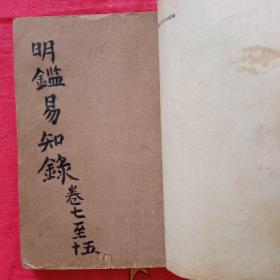 明鑑易知錄
卷七至十五
16